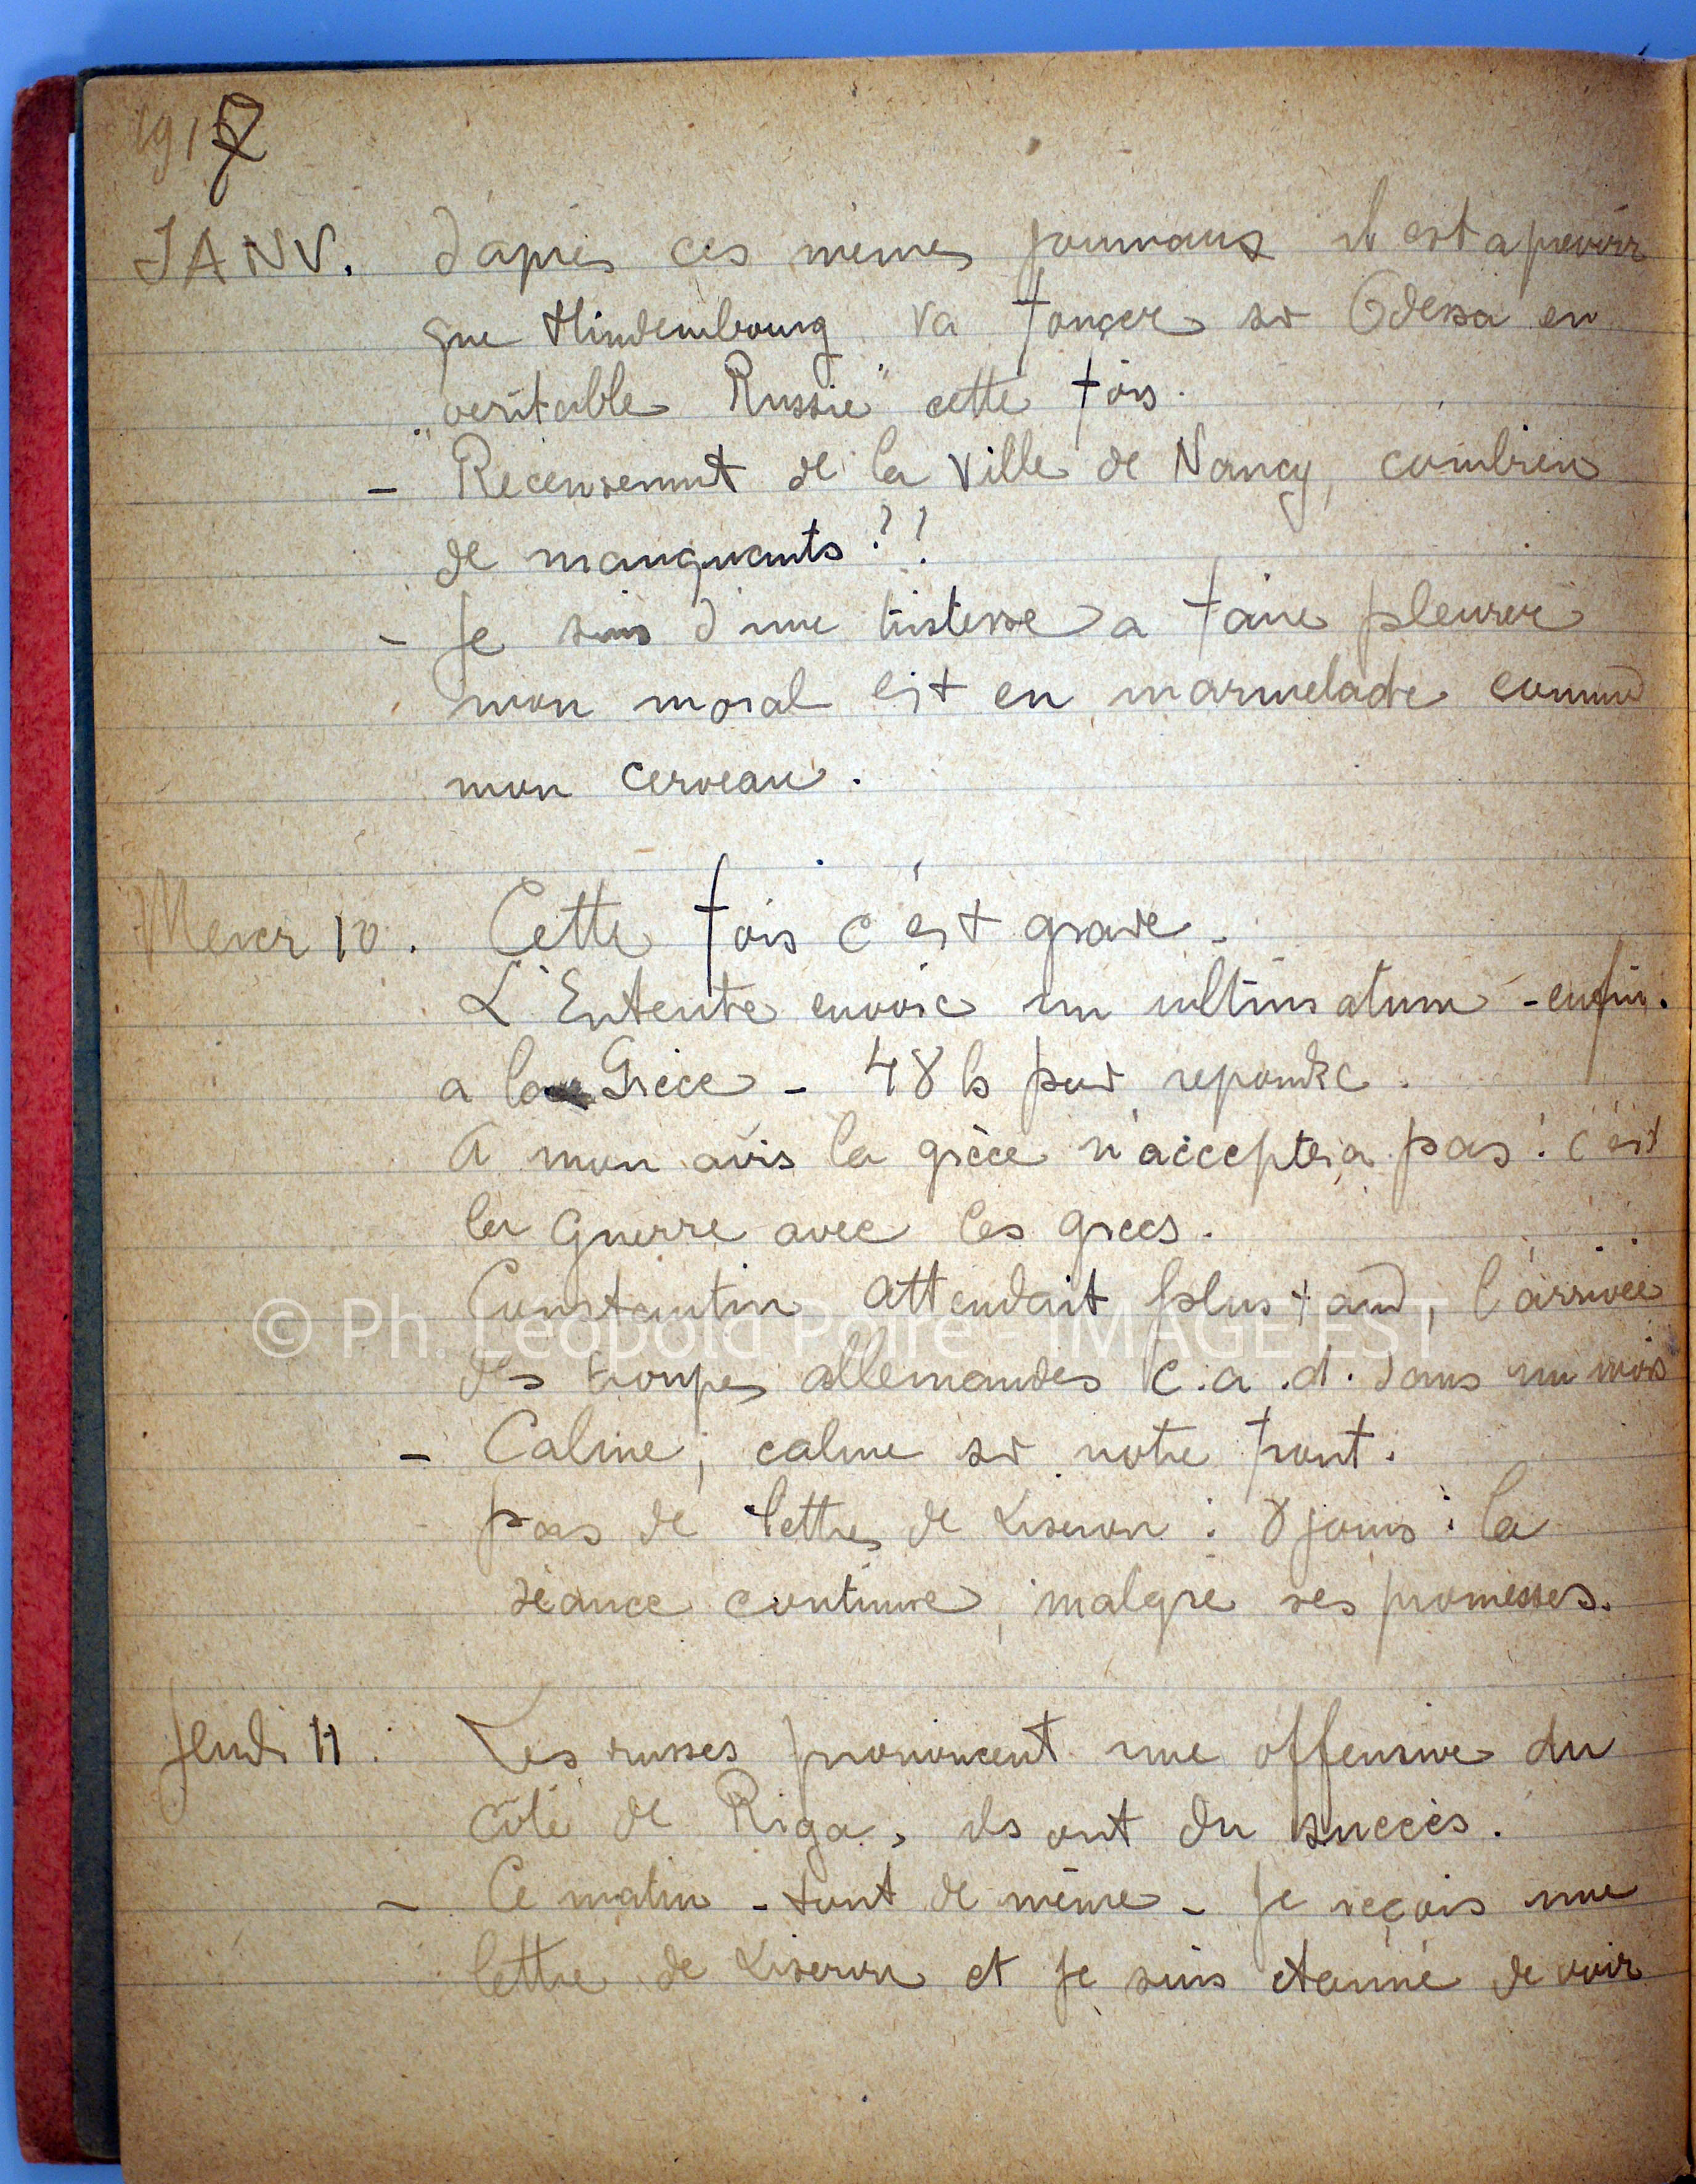 1917
JANV. d'après ces mêmes journaux il est a prevoir
que Hindembourg va foncer sr Odessa en
"veritable Russie" cette fois.
- Recensement de la Ville de Nancy, combien
de manquants ??
- Je suis d'une tristesse a faire pleurer
mon moral est en marmelade comme
mon cerveau.
Mercr 10. Cette fois c'est grave -
L'Entente envoie un ultimatum - enfin.
a la Grèce - 48 h pour repondre.
A mon avis la grèce n'acceptera pas : c'est
la Guerre avec les grecs.
Constantin attendait plus tard, l'arrivée
des troupes allemandes c.a.d. dans un mois
- Calme, calme sr notre front.
pas de lettres de Liseron : 8 jours : la
séance continue, malgré ses promesses.
Jeudi 11. Les russes prononcent une offensive du
côté de Riga, ils ont du succès.
- Ce matin - tout de même - Je reçois une
lettre de Liseron et Je suis étonné de voir
© Ph. Léopold Poiré - IMAGE'EST